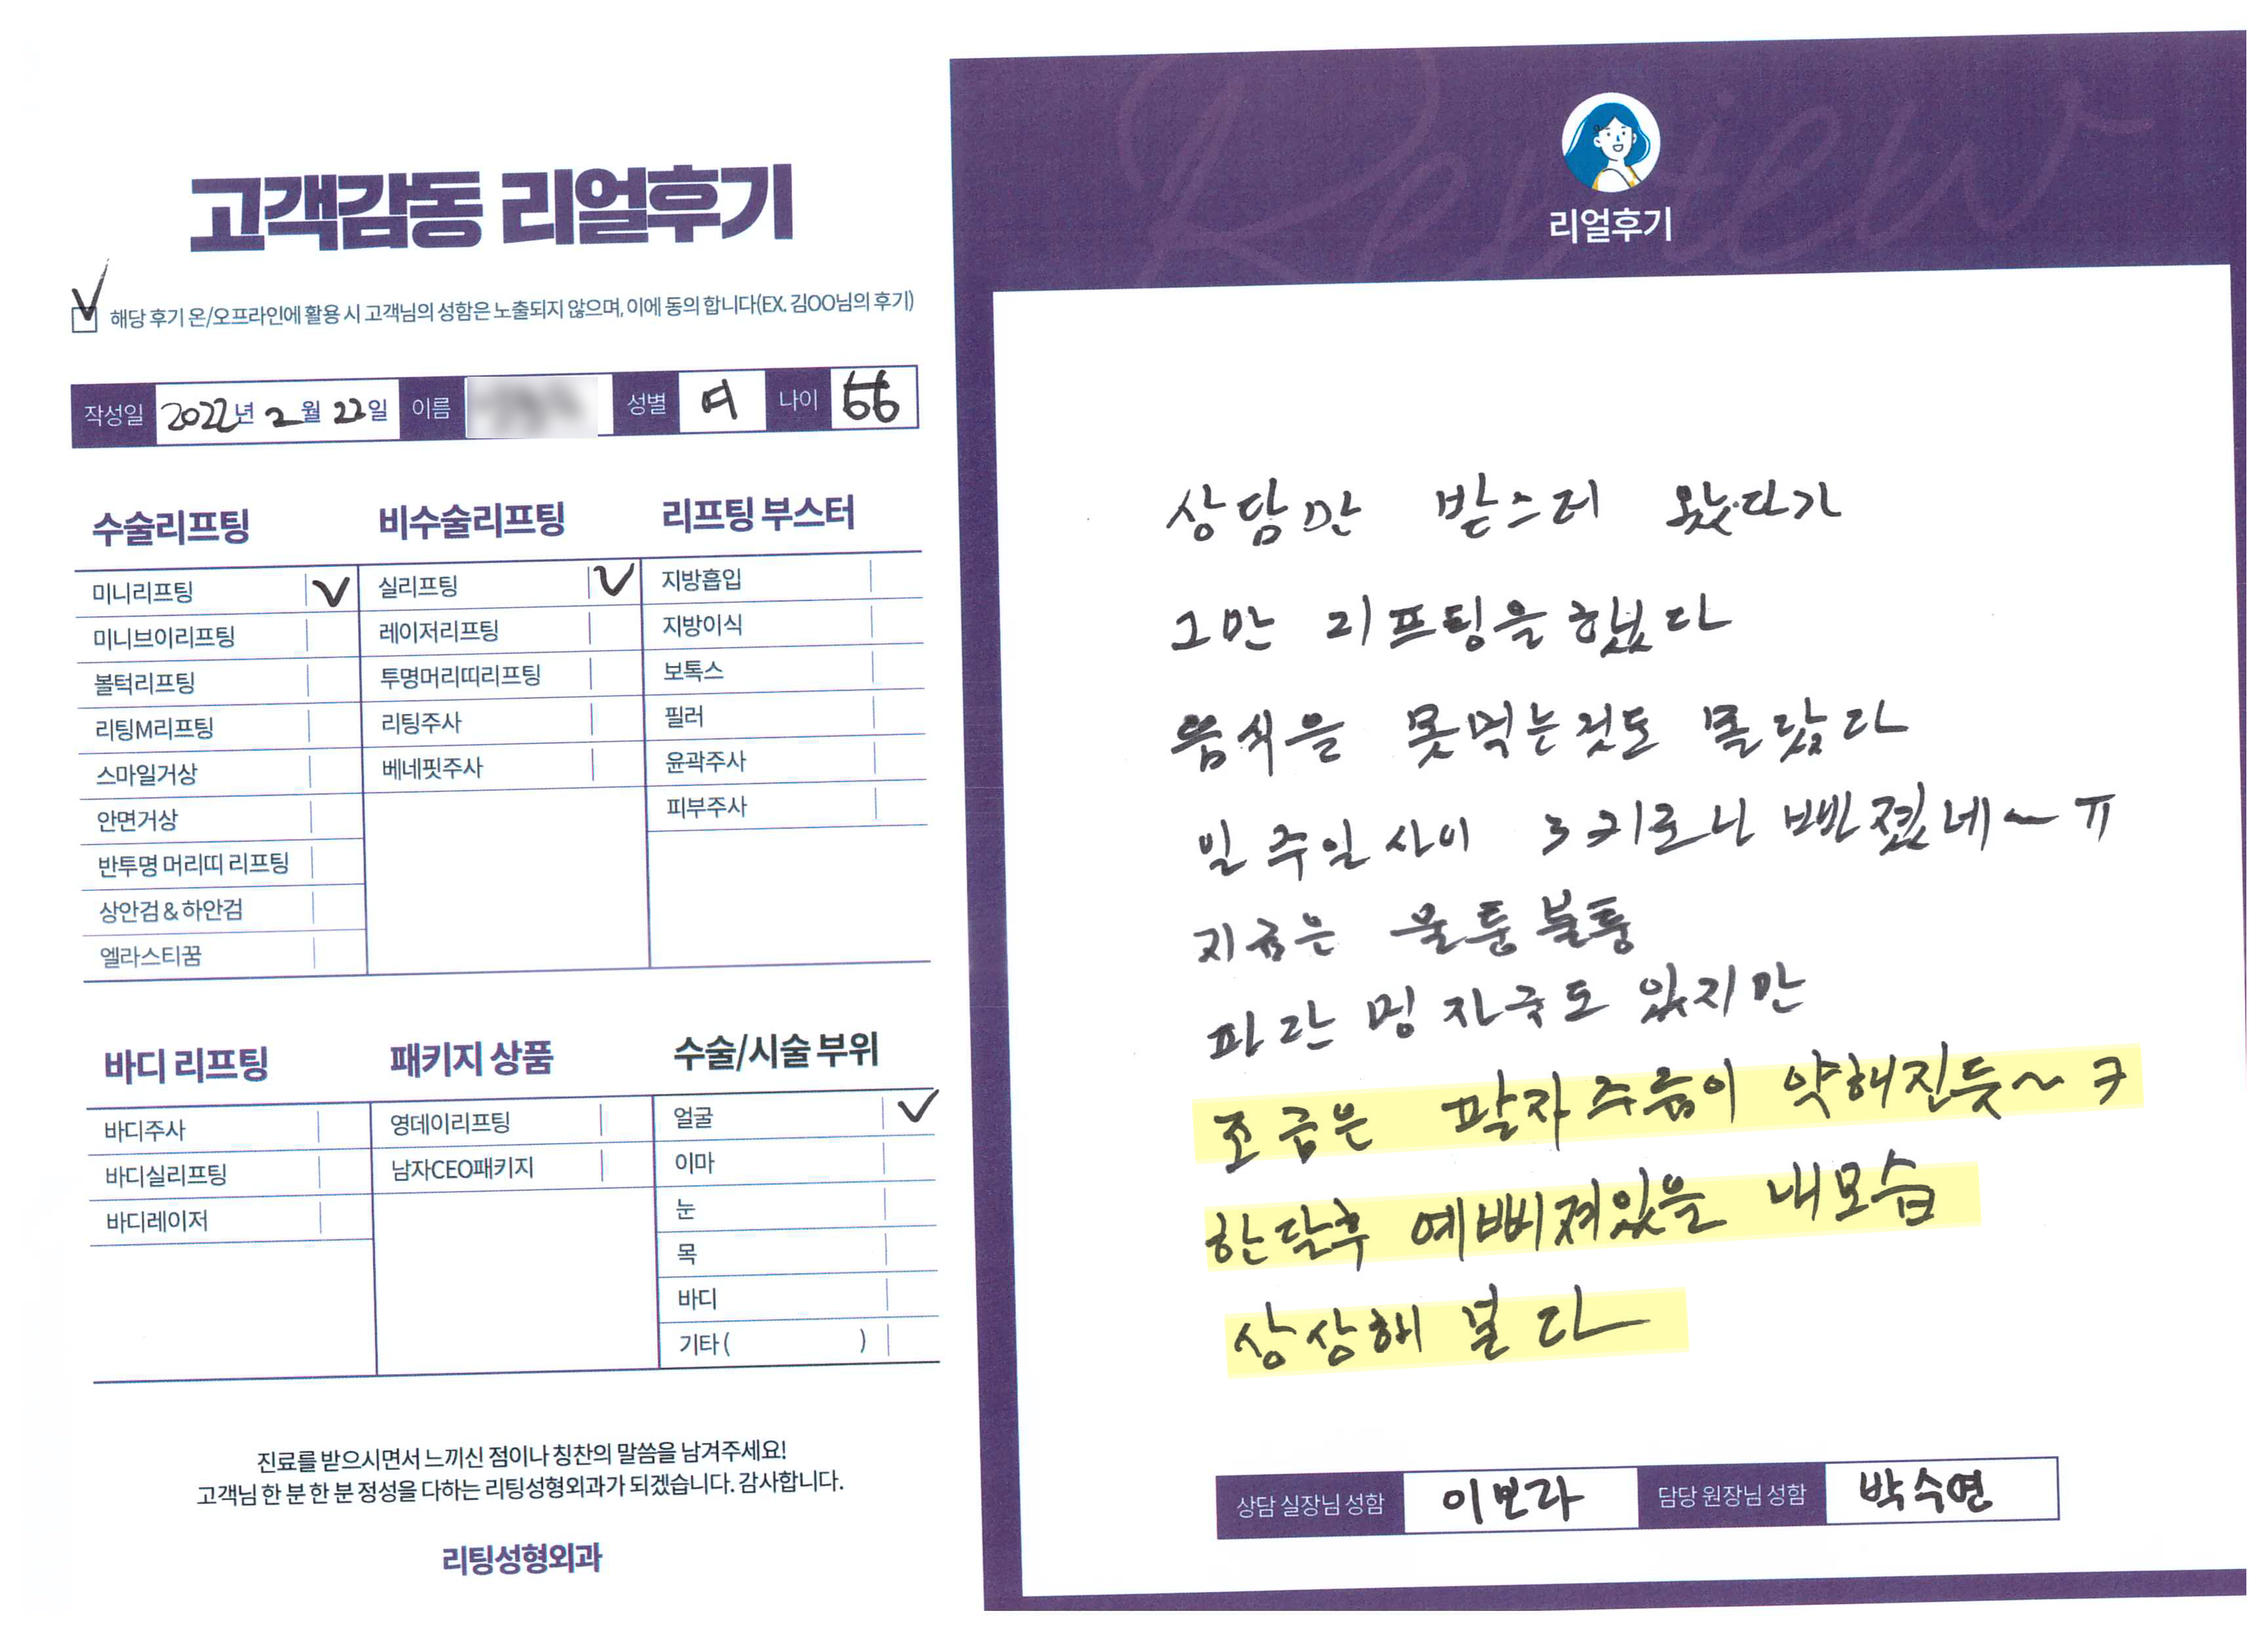 고객감동 리얼후기
해당 후기 온/오프라인에 활용 시 고객님의 성함은 노출되지 않으며, 이에 동의 합니다(EX. 김OO님의 후기)
작성일 2022년 2월 22일 이름 성별 여 나이 66
수술리프팅
미니리프팅
미니브이리프팅
볼턱리프팅
리팅M리프팅
스마일거상
안면거상
반투명 머리띠 리프팅
상안검&하안검
엘라스티꿈
비수술리프팅
실리프팅
레이저리프팅
투명머리띠리프팅
리팅주사
베네핏주사
리프팅 부스터
지방흡입
지방이식
보톡스
필러
윤곽주사
피부주사
바디 리프팅
바디주사
바디실리프팅
바디레이저
패키지 상품
영데이리프팅
남자CEO패키지
수술/시술 부위
얼굴
이마
눈
목
바디
기타 ( )
진료를 받으시면서 느끼신 점이나 칭찬의 말씀을 남겨주세요!
고객님 한 분 한 분 정성을 다하는 리팅성형외과가 되겠습니다. 감사합니다.
리팅성형외과
Review
리얼후기
상담만 받으러 왔다가
그만 리프팅을 했다
음식을 못먹는것도 몰랐다
일주일 사이 3키로나 빠졌네~ㅠ
지금은 울퉁불퉁
파란 멍 자국도 있지만
조금은 팔자주름이 약해진듯~ㅋ
한달후 예뻐져있을 내모습
상상해 본다
상담 실장님 성함 이보라 담당 원장님 성함 박수연